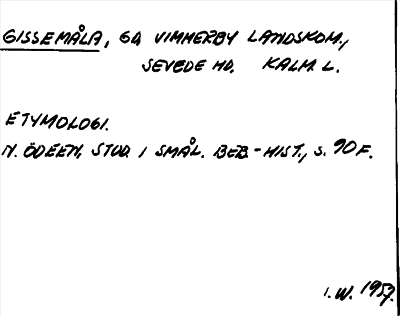 GISSEMÅLA, GD, VIMMERBY LANDSKOM.,
SEVEDE HD. KALM. L.
ETYMOLOGI.
N. ÖDEEN, STUD. I SMÅL. BEB.-HIST., S. 90 F.
I. W. 1957.